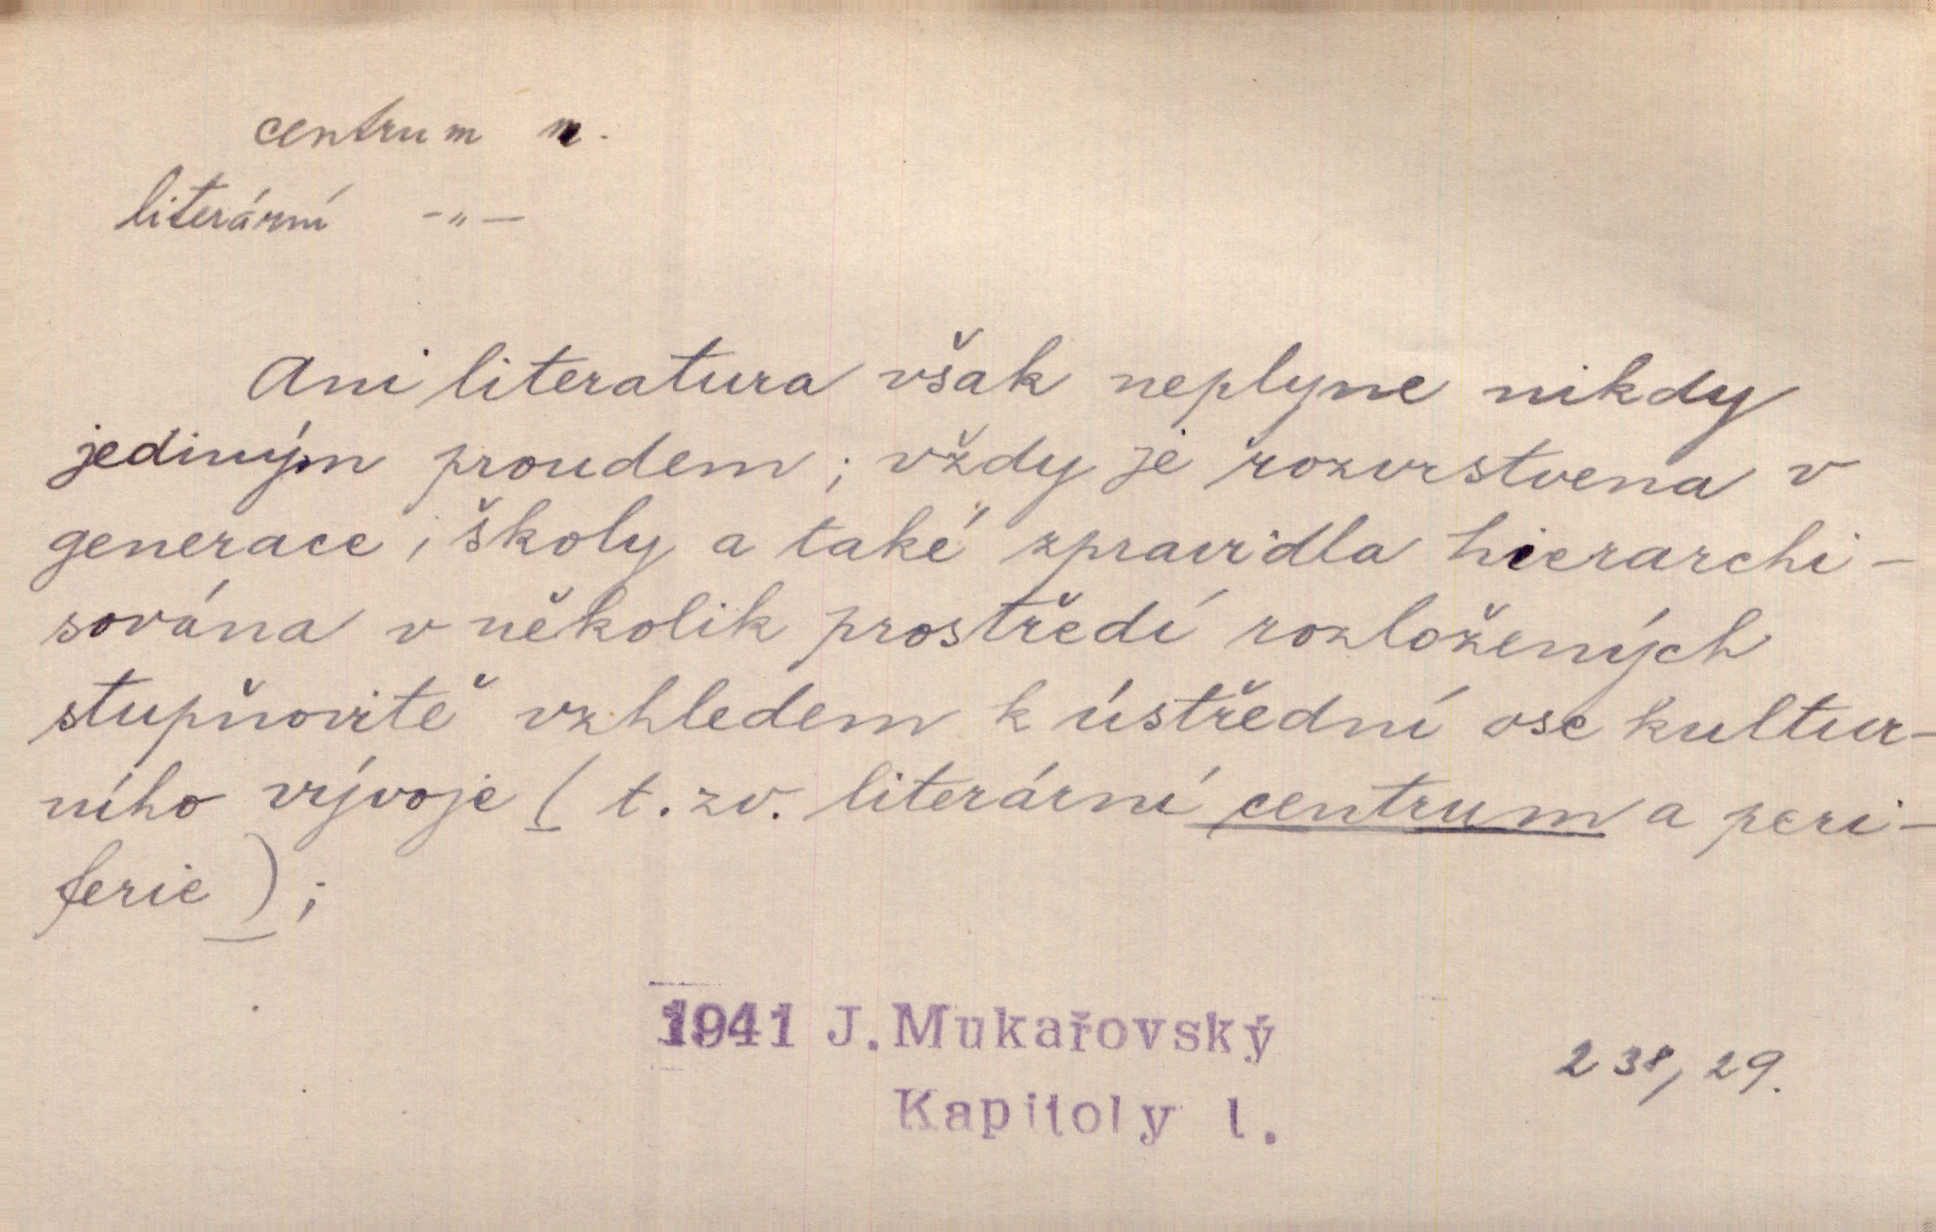 centrum n.
literární -"-
Ani literatura však neplyne nikdy
jediným proudem; vždy je rozvrstvena v
generace, školy a také zpravidla hierarchi-
sována v několik prostředí rozložených
stupňovitě vzhledem k ústřední ose kultur-
ního vývoje (t.zv. literární centrum a peri-
ferie);
1941 J.Mukařovský
Kapitoly 1.
238, 29.